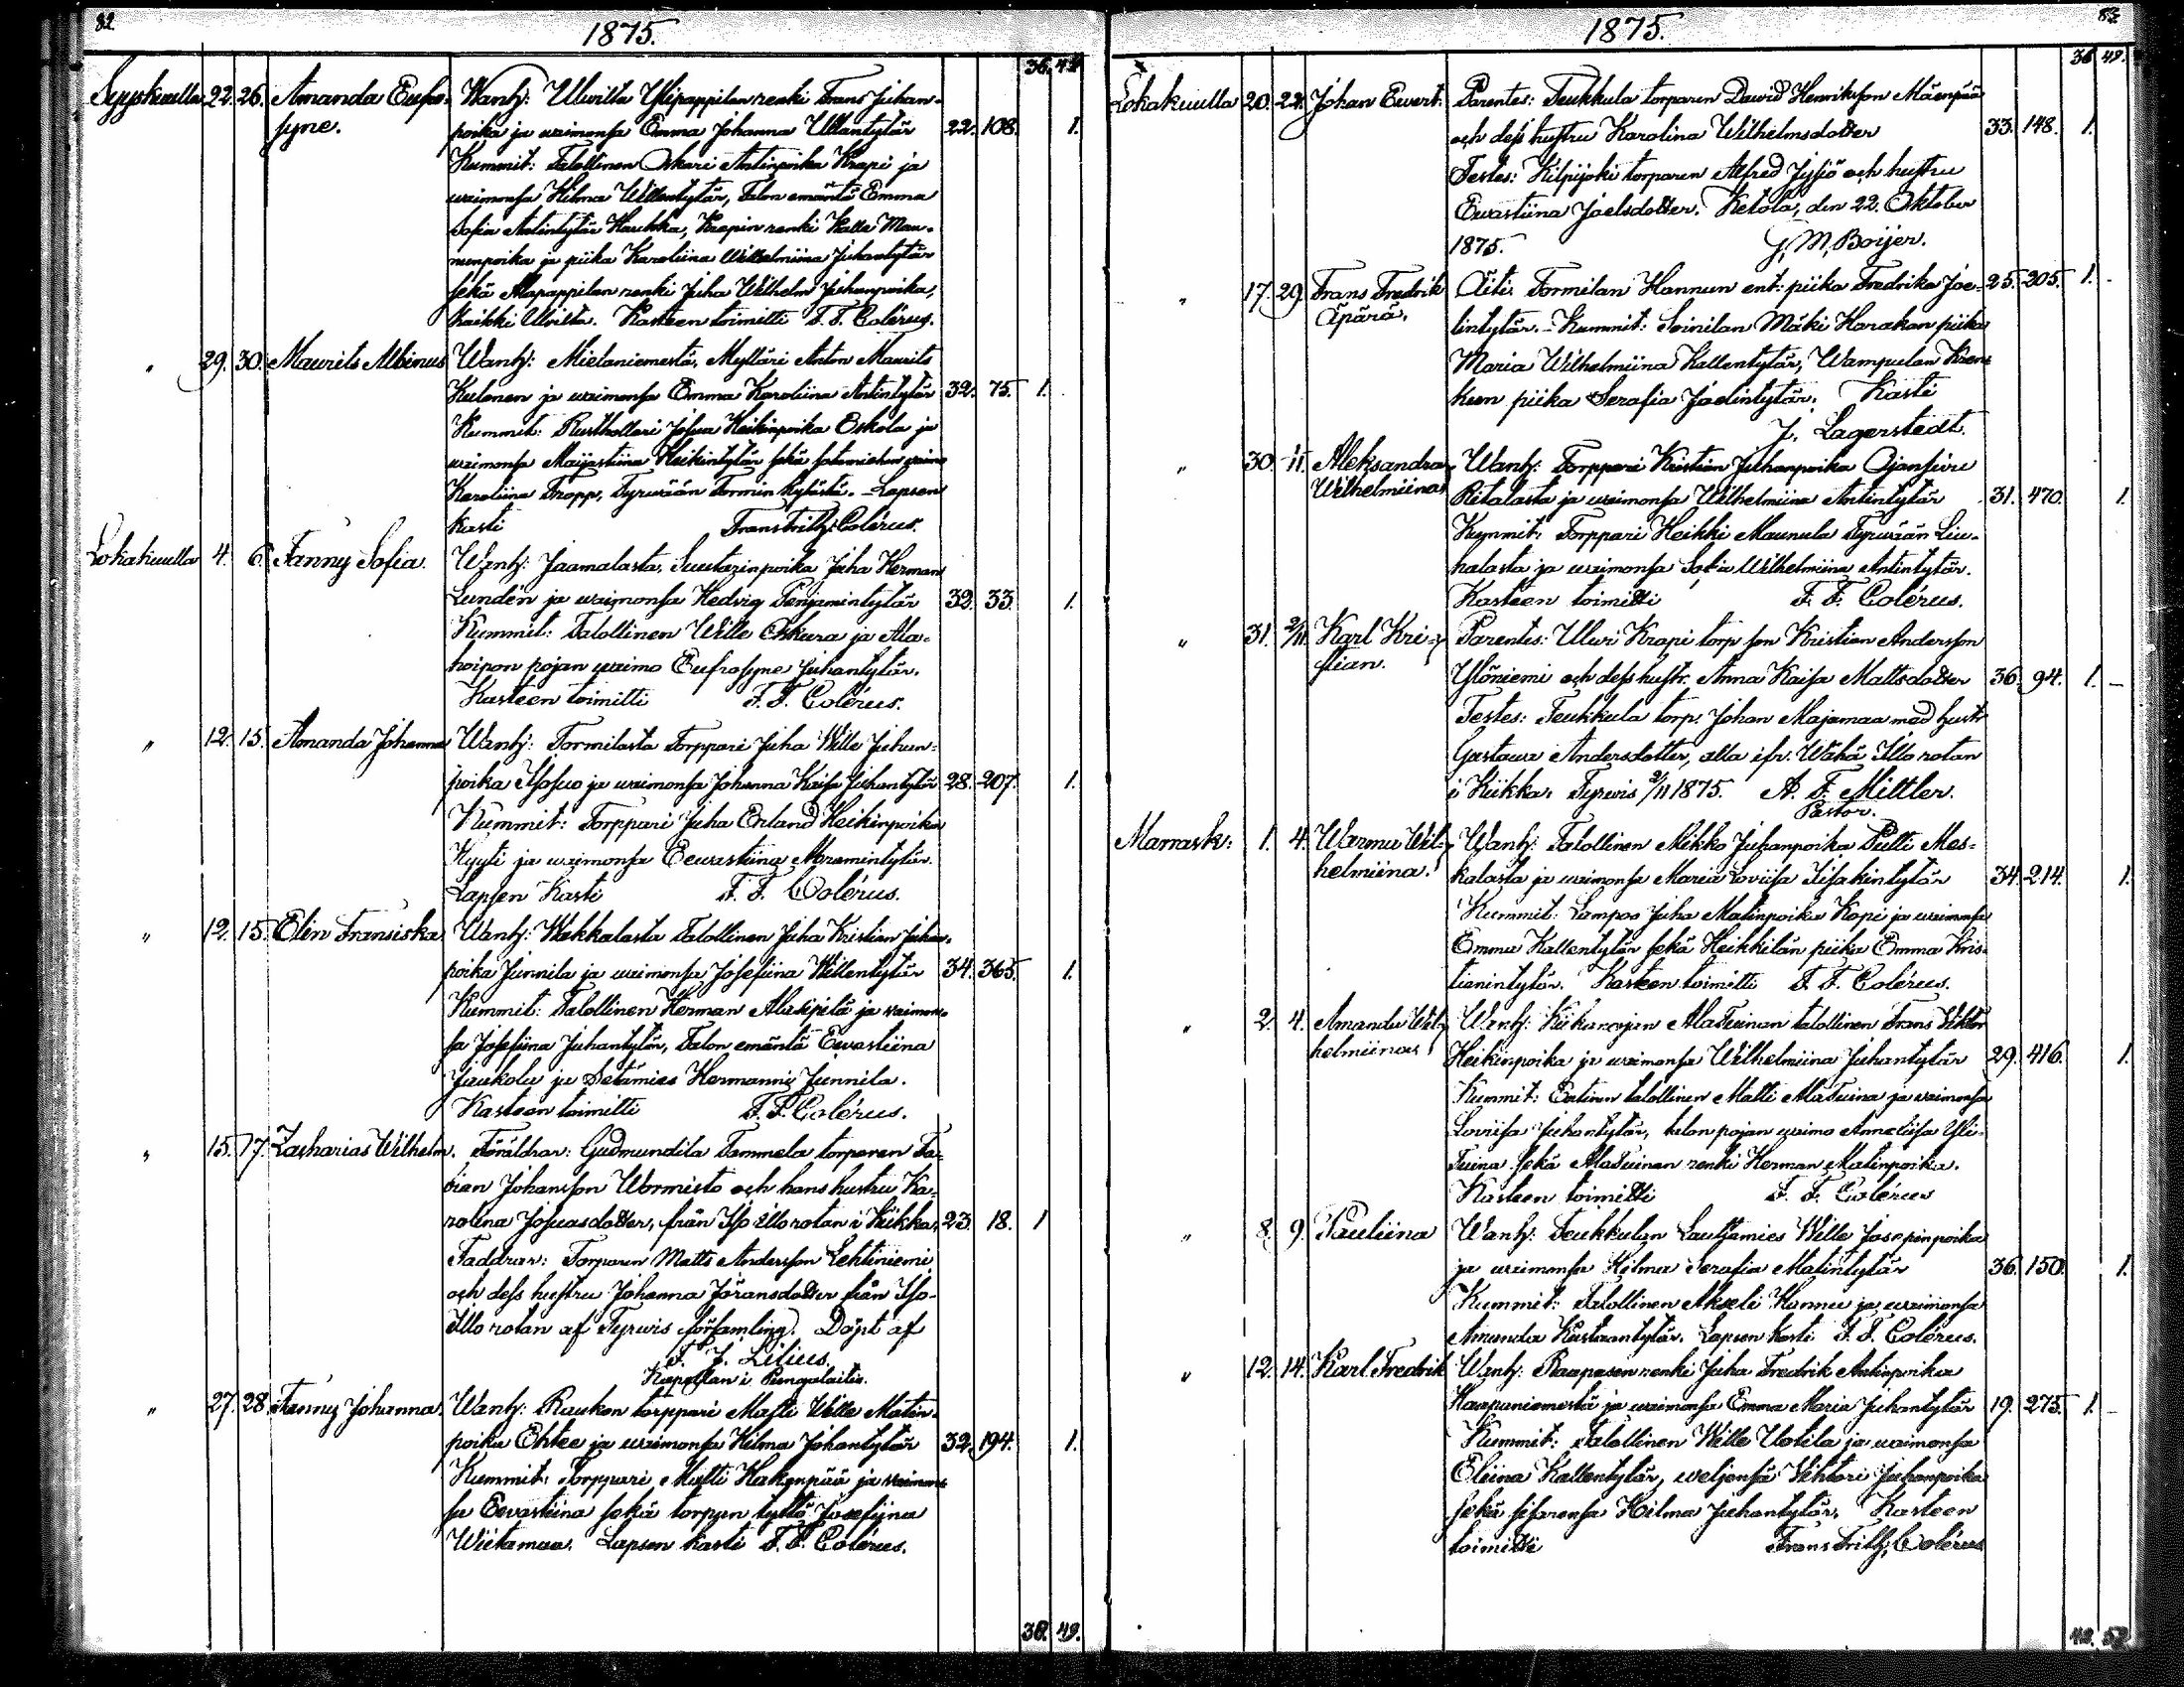 82.
1875.
36. 42.
Syyskuulla 22. 26. Amanda Eufro- Wanh: Ulvilta Ylipappilan renki Frans Juhan-
syne. poika ja waimonsa Emma Johanna Villentytär 22. 108. 1.
Kummit: Talollinen Oskari Antinpoika Krapi ja
waimonsa Hilma Willentytär, Talon emäntä Emma
Sofia Antintytär Haukka, Krapin renki Kalle Man-
nunpoika ja piika Karoliina Wilhelmiina Juhantytär
sekä Alapappilan renki Juha Wilhelm Juhanpoika,
kaikki Ulvilta. Kasteen toimitti F. F. Colérus.
" 29. 30. Maurits Albinus Wanh: Mielaniemestä, Mylläri Anton Maurits
Kulonen ja waimonsa Emma Karoliina Antintytär 32. 75. 1.
Kummit: Rusthollari Josua Heikinpoika Eskola ja
waimonsa Maijastiina Heikintytär sekä sotamiehen waimo
Karoliina Tropp, Tyrwään Tormin kylästä. - Lapsen
kasti Frans Frith: Colérus.
Lokakuulla 4. 6. Fanny Sofia. Wanh: Jaamalasta, Suutarinpoika Juha Herman
Lundén ja waimonsa Hedvig Penjamintytär 32. 33. 1.
Kummit: Talollinen Wille Oskura ja Ala-
hoipon pojan waimo Eufrosyne Juhantytär.
Kasteen toimitti F. F. Colérus.
" 12. 15. Amanda Johanna Wanh: Tormilasta Torppari Juha Wille Juhan-
poika Isosuo ja waimonsa Johanna Kaisa Juhantytär 28. 207. 1.
Kummit: Torppari Juha Erland Heikinpoika
Kyyti ja waimonsa Eewastiina Abramintytär.
Lapsen Kasti F. F. Colérus.
" 12. 15. Elin Fransiska Wanh: Wakkalasta Talollinen Juha Kristian Juhan-
poika Junnila ja waimonsa Josefiina Willentytär 34. 365. 1.
Kummit: Talollinen Herman Alasipilä ja waimon-
sa Josefiina Juhantytär, Talon emäntä Eewastiina
Jaukolu ja Setämies Hermanni Junnila.
Kasteen toimitti F. F. Colérus.
" 15. 17. Zacharias Wilhelm. Föräldrar: Gudmundila Tammela torparen Fa-
bian Johansson Wormisto och hans hustru Ka-
rolina Josuasdotter, från Iso Illo rotan i Kiikka, 23. 18. 1
Faddrar: Torparen Matts Andersson Lehtiniemi
och dess hustru Johanna Göransdotter från Iso-
Illo rotan af Tyrwis församling. Döpt af
F. J. Lilius.
Kapellan i Pungalaitio.
" 27. 28. Fanny Johanna. Wanh: Raukon torppari Matti Wille Matin-
poika Ehtee ja waimonsa Hilma Johantytär 32. 194. 1.
Kummit: Torppari Matti Hakanpää ja waimon-
sa Eewastiina sekä torpan tyttö Josefiina
Wiitamaa. Lapsen kasti F. F. Colérus.
38. 49.
83.
1875.
36. 49.
Lokakuulla 20. 22. Johan Ewert. Parentes: Teukkula torparen Dawid Henriksson Mäenpää
och dess hustru Karolina Wilhelmsdotter 33. 148. 1.
Testes: Kilpijoki torparen Alfred Jysiö och hustru
Ewastiina Joelsdotter. Ketola, den 22. Oktober
1875. J. M. Boijer.
" 17. 29. Frans Fredrik Äiti: Tormilan Hannun ent: piika Fredrika Joe- 25. 205. 1. -
Äpärä. lintytär. - Kummit: Soinilan Mäki Harakan piika
Maria Wilhelmiina Kallentytär, Wampulan Kron-
kun piika Serafia Joelintytär. Kasti
J. Lagerstedt.
" 30. 11. Aleksandra Wanh: Torppari Kristian Juhanpoika Ojansivu
Wilhelmiina Ritalasta ja waimonsa Wilhelmiina Antintytär 31. 470. 1.
Kummit: Torppari Heikki Maunula Tyrwään Liu-
halasta ja waimonsa Sofia Wilhelmiina Antintytär.
Kasteen toimitti F. F. Colérus.
" 31. 2/11. Karl Kri- Parentes: Ulvi Krapi torp. son Kristian Andersson
stian. Ylöniemi och dess hustr. Anna Kaisa Mattsdotter 36. 94. 1. -
Testes: Teukkula torp. Johan Majamaa med hustr.
Gustawa Andersdotter, alla ifr. Wähä Illo rotan
i Kiikka. Tyrwis 2/11 1875. A. F. Mittler.
Pastor.
Marrask: 1. 4. Warma Wil- Wanh: Talollinen Mikko Juhanpoika Pulli Mes-
helmiina. kalasta ja waimonsa Maria Loviisa Iisakintytär 34. 214. 1.
Kummit: Lampos Juha Matinpoika Kopi ja waimonsa
Emma Kallentytär sekä Heikkilän piika Emma Kris-
tianintytär. Kasteen toimitti F. F. Colérus.
" 2. 4. Amanda Wil- Wanh: Kiikanojan AlaTuinan talollinen Frans Viktor
helmiina Heikinpoika ja waimonsa Wilhelmiina Juhantytär 29. 416. 1.
Kummit: Entinen talollinen Matti AlaTuina ja waimonsa
Loviisa Juhantytär, talon pojan waimo Annaliisa Yli-
Tuina sekä AlaTuinan renki Herman Matinpoika.
Kasteen toimitti F. F. Colérus
" 8. 9. Pauliina Wanh: Teukkulan Lauttamies Wille Josepinpoika
ja waimonsa Hilma Serafia Matintytär 36. 150. 1.
Kummit: Talollinen Akseli Hannu ja waimonsa
Amanda Kustaantytär. Lapsen kasti F. F. Colérus.
" 12. 14. Karl Fredrik Wanh: Raapasen renki Juha Fredrik Antinpoika
Haapaniemestä ja waimonsa Emma Maria Juhantytär 19. 275. 1. -
Kummit: Talollinen Wille Uotila ja waimonsa
Eliina Kallentytär, weljensä Vihtori Juhanpoika
sekä sisarensa Hilma Juhantytär. Kasteen
toimitti Frans Frith: Colérus
42. 52